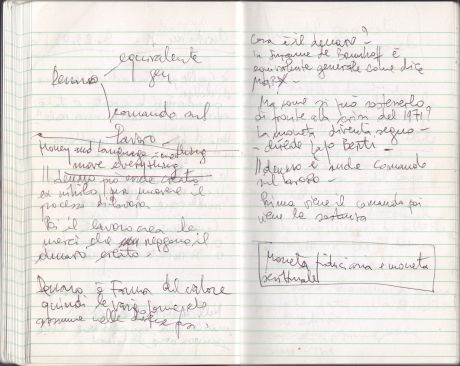 equivalente
gen
Denaro
comando sul
lavoro
Money and Language
move everything
Il denaro può anche
ex nihilo per muovere il
processo di lavoro.
Poi il lavoro crea le
merci che il
denaro creato.
Denaro è Forma del valore
quindi le varie forme che
assume nelle diverse fasi.
Cosa è il denaro?
in è
equivalente generale come dice
Marx
Ma come si può sostenerlo
di fronte alla crisi del 1971?
la moneta diventa segno –
– chiede Lapo Berti –
Il denaro è anche comando
sul lavoro –
Prima viene il comando poi
viene la sostanza
Moneta fiduciaria e moneta
scritturale